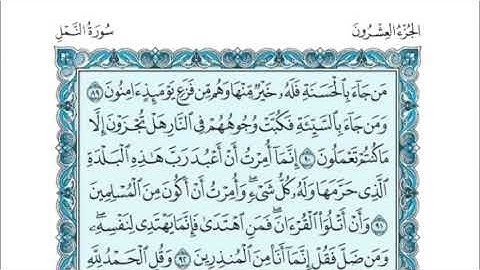 الجزء العشرون سورة النمل
مَن جَآءَ بِٱلْحَسَنَةِ فَلَهُۥ خَيْرٌ مِّنْهَا وَهُم مِّن فَزَعٍ يَوْمَئِذٍ ءَامِنُونَ ٨٩
وَمَن جَآءَ بِٱلسَّيِّئَةِ فَكُبَّتْ وُجُوهُهُمْ فِى ٱلنَّارِ هَلْ تُجْزَوْنَ إِلَّا
مَا كُنتُمْ تَعْمَلُونَ ٩٠ إِنَّمَآ أُمِرْتُ أَنْ أَعْبُدَ رَبَّ هَٰذِهِ ٱلْبَلْدَةِ
ٱلَّذِى حَرَّمَهَا وَلَهُۥ كُلُّ شَىْءٍ ۖ وَأُمِرْتُ أَنْ أَكُونَ مِنَ ٱلْمُسْلِمِينَ
٩١ وَأَنْ أَتْلُوَا۟ ٱلْقُرْءَانَ ۖ فَمَنِ ٱهْتَدَىٰ فَإِنَّمَا يَهْتَدِى لِنَفْسِهِۦ ۖ
وَمَن ضَلَّ فَقُلْ إِنَّمَآ أَنَا۠ مِنَ ٱلْمُنذِرِينَ ٩٢ وَقُلِ ٱلْحَمْدُ لِلَّهِ